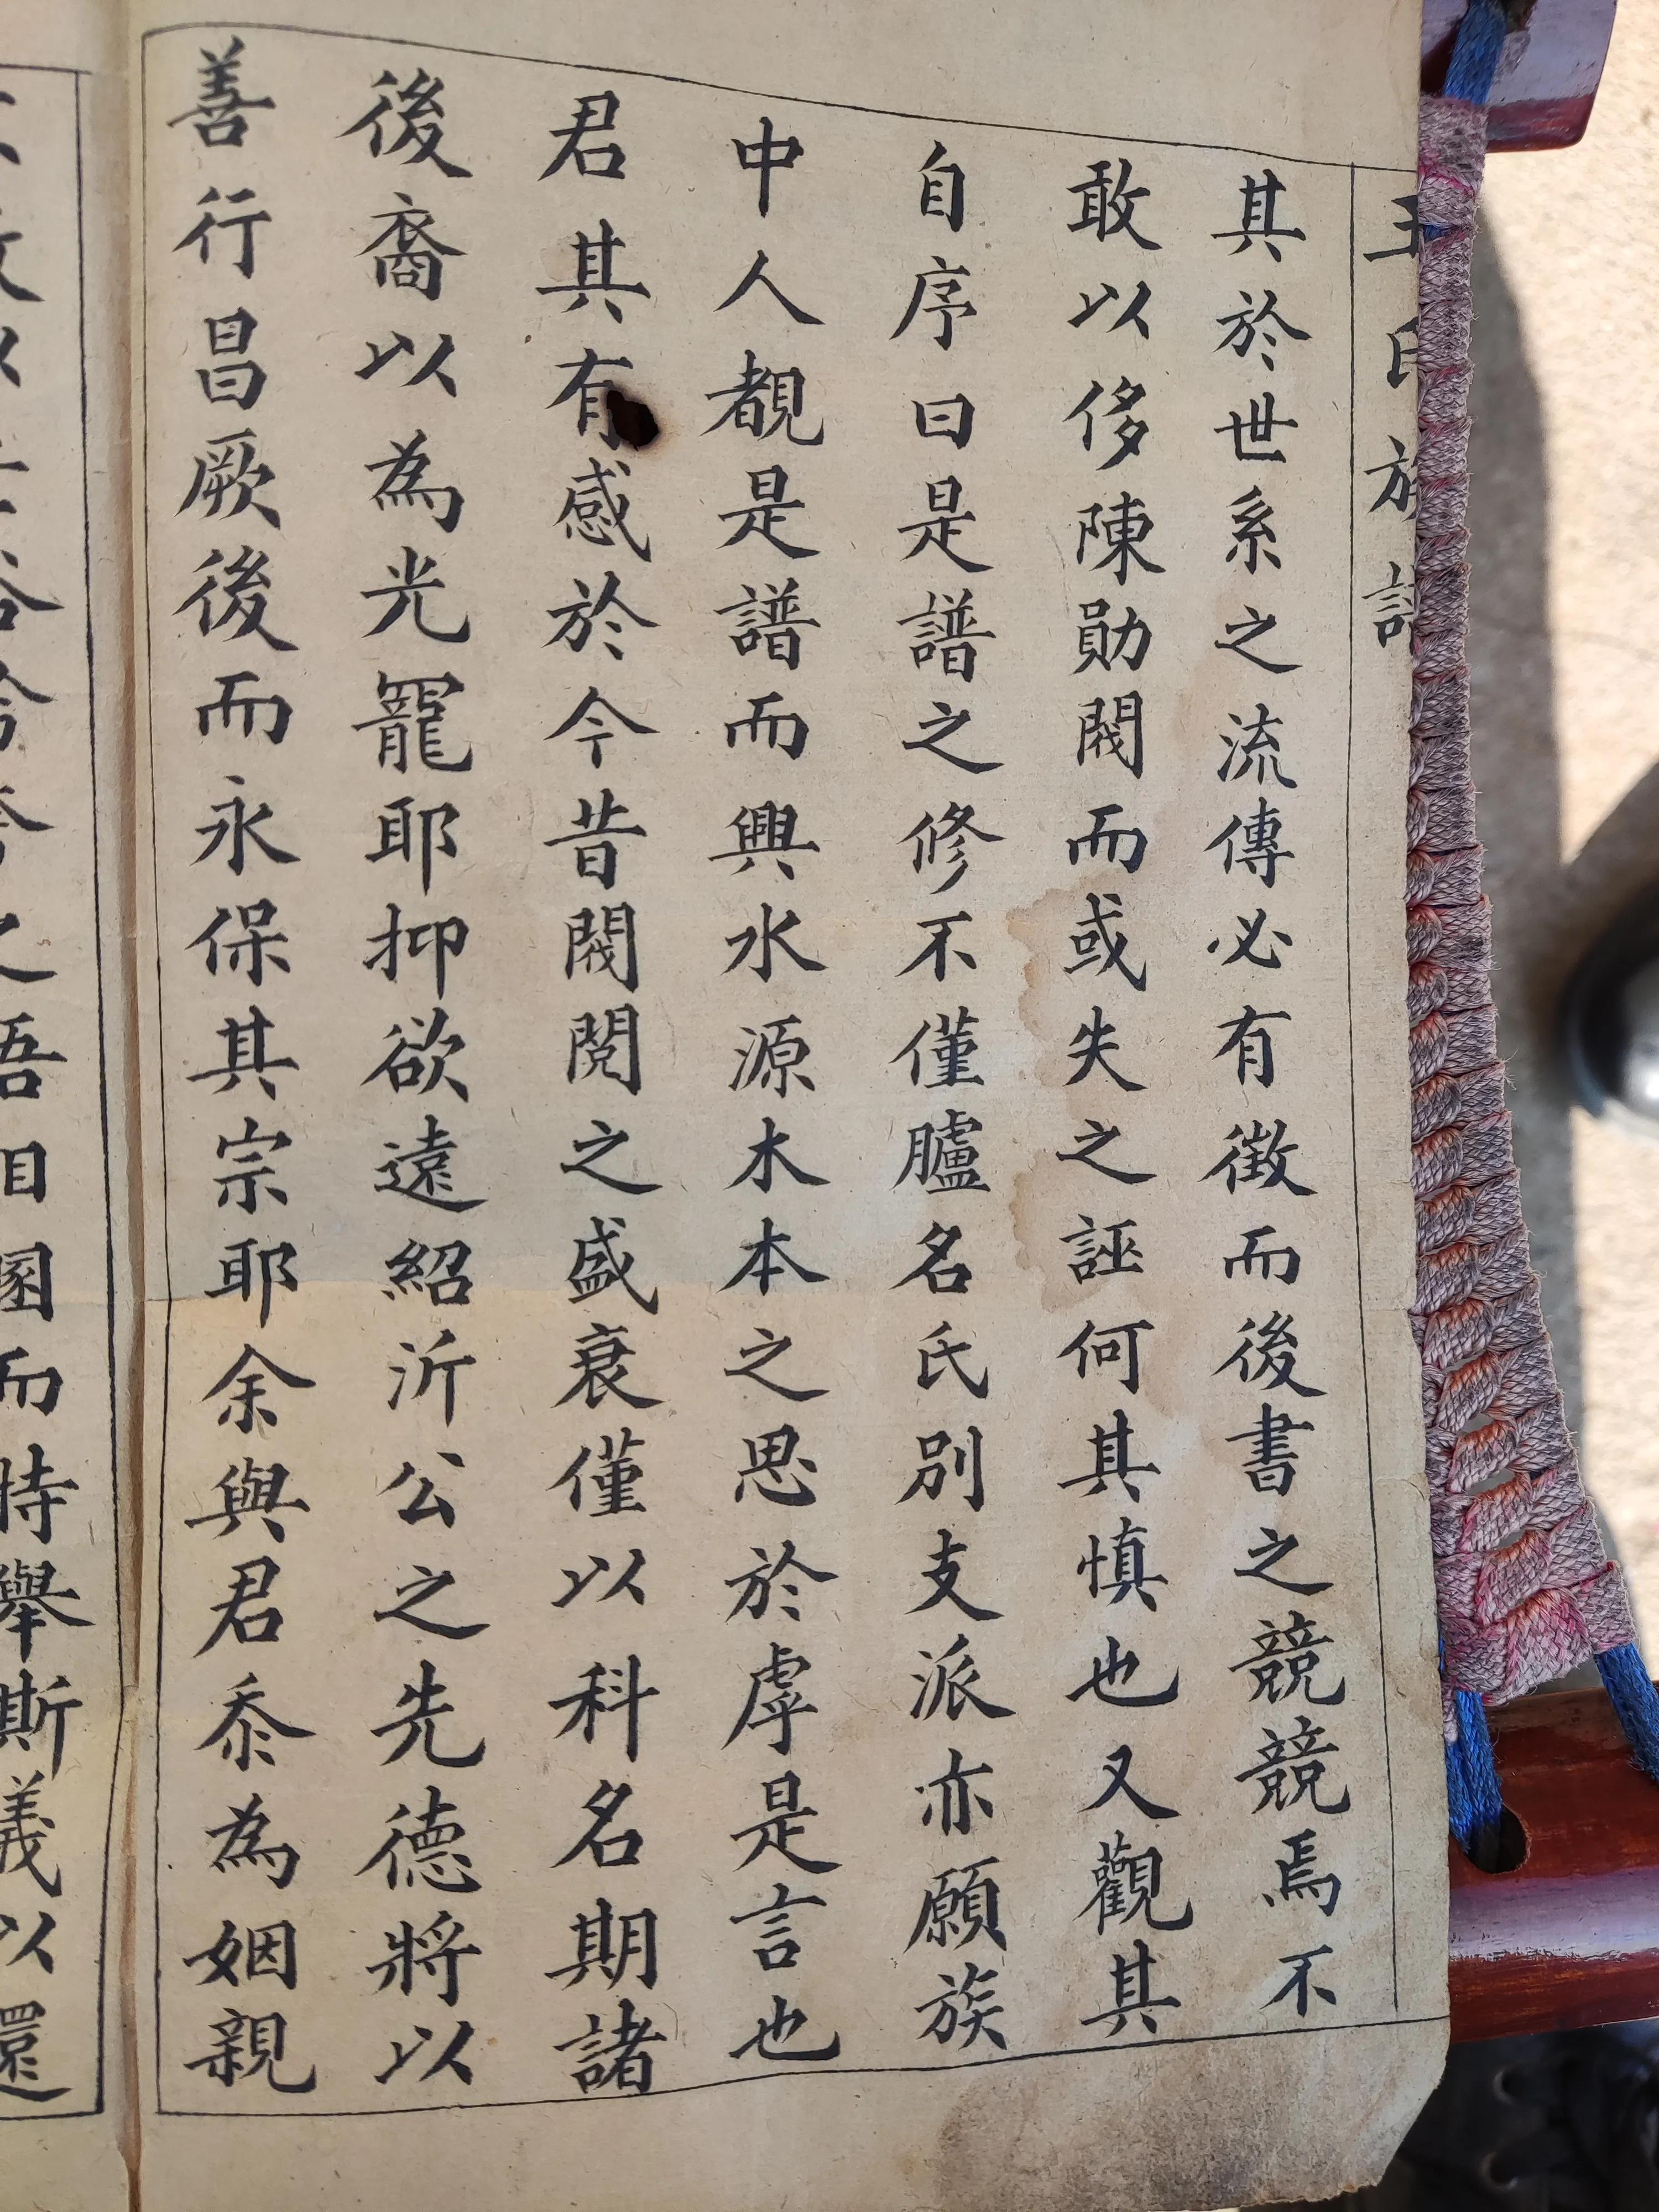 王氏族譜
其於世系之流傳必有徵而後書之競競焉不
敢以侈陳勛閥而或失之誣何其慎也又觀其
自序曰是譜之修不僅臚名氏別支派亦願族
中人覩是譜而興水源木本之思於虖是言也
君其有感於今昔閥閱之盛衰僅以科名期諸
後裔以為光寵耶抑欲遠紹沂公之先德將以
善行昌厥後而永保其宗耶余與君忝為姻親
舉斯義以還